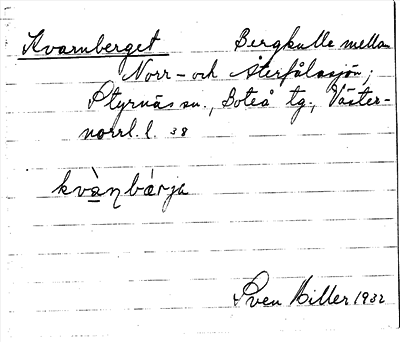 Kvarnberget Bergkulle mellan
Norr- och Återfålasjön;
Styrnäs sn., Boteå tg., Väster-
norrl. l. 38
kvà̱ŋbárja
Sven Hiller 1932